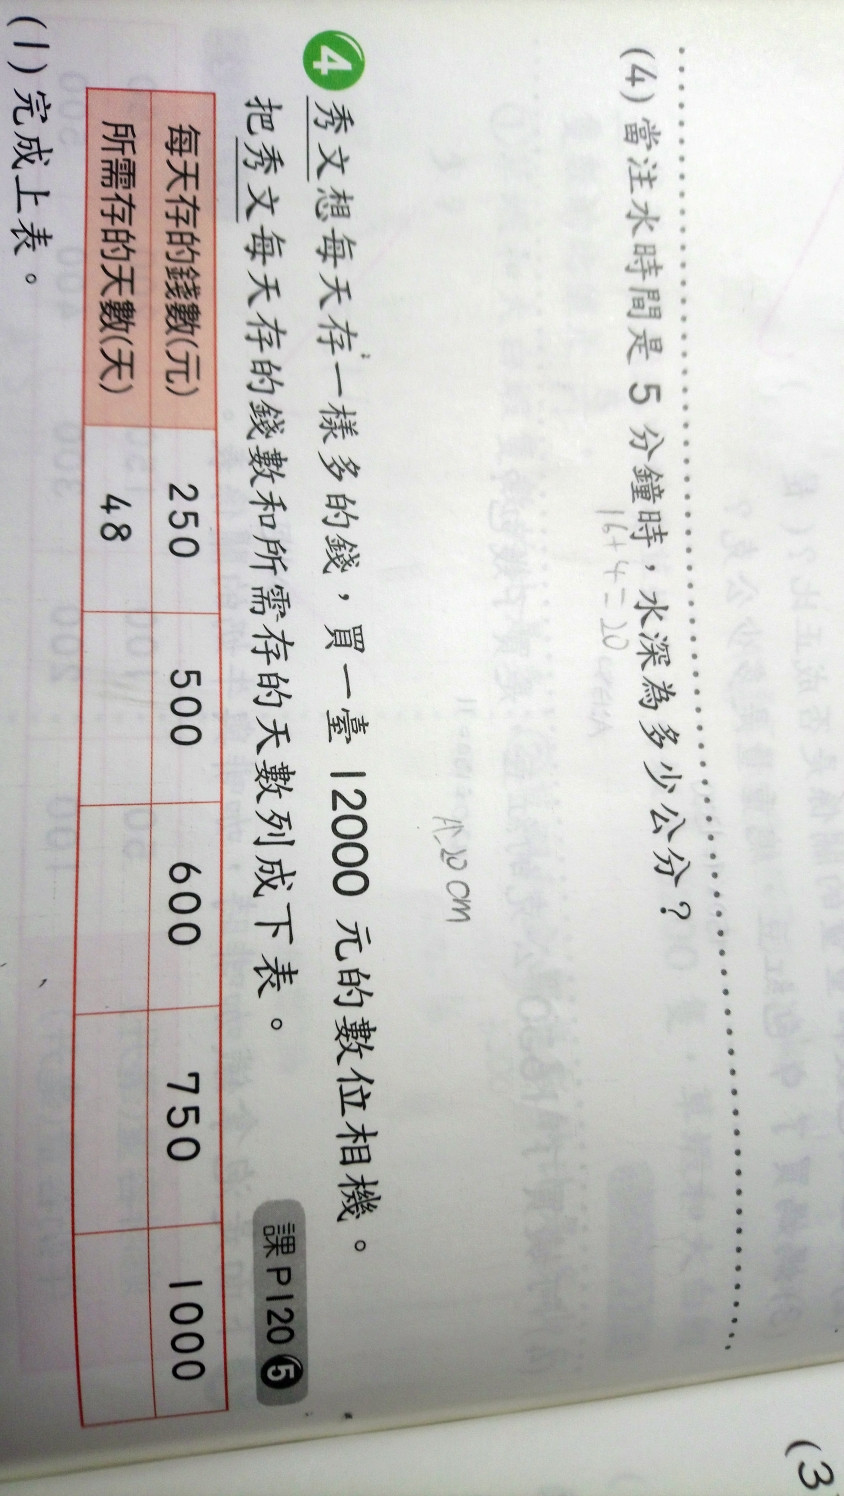 (4)當注水時間是 5 分鐘時，水深為多少公分？
16+4=20
A:20cm
4 秀文想每天存一樣多的錢，買一臺 12000 元的數位相機。
把秀文每天存的錢數和所需存的天數列成下表。
課 P120 5
每天存的錢數(元) 250 500 600 750 1000
所需存的天數(天) 48
(1)完成上表。
(3